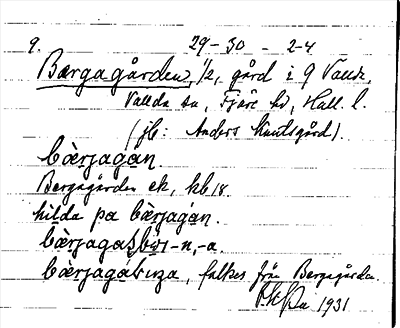 9. 29-30 - 2-4
Bærgagården, 1/2, gård i 9 Valda,
Vallda sn, Fjäre hd, Hall. l.
(jb: Anders Knutsgård).
bæ̀rjagan.
Bergagården ek, kb 18.
hilda pa bæ̀rjagán.
bæ̀rjaga -n, -a.
bæ̀rjagá, folket från Bergagården.
1931